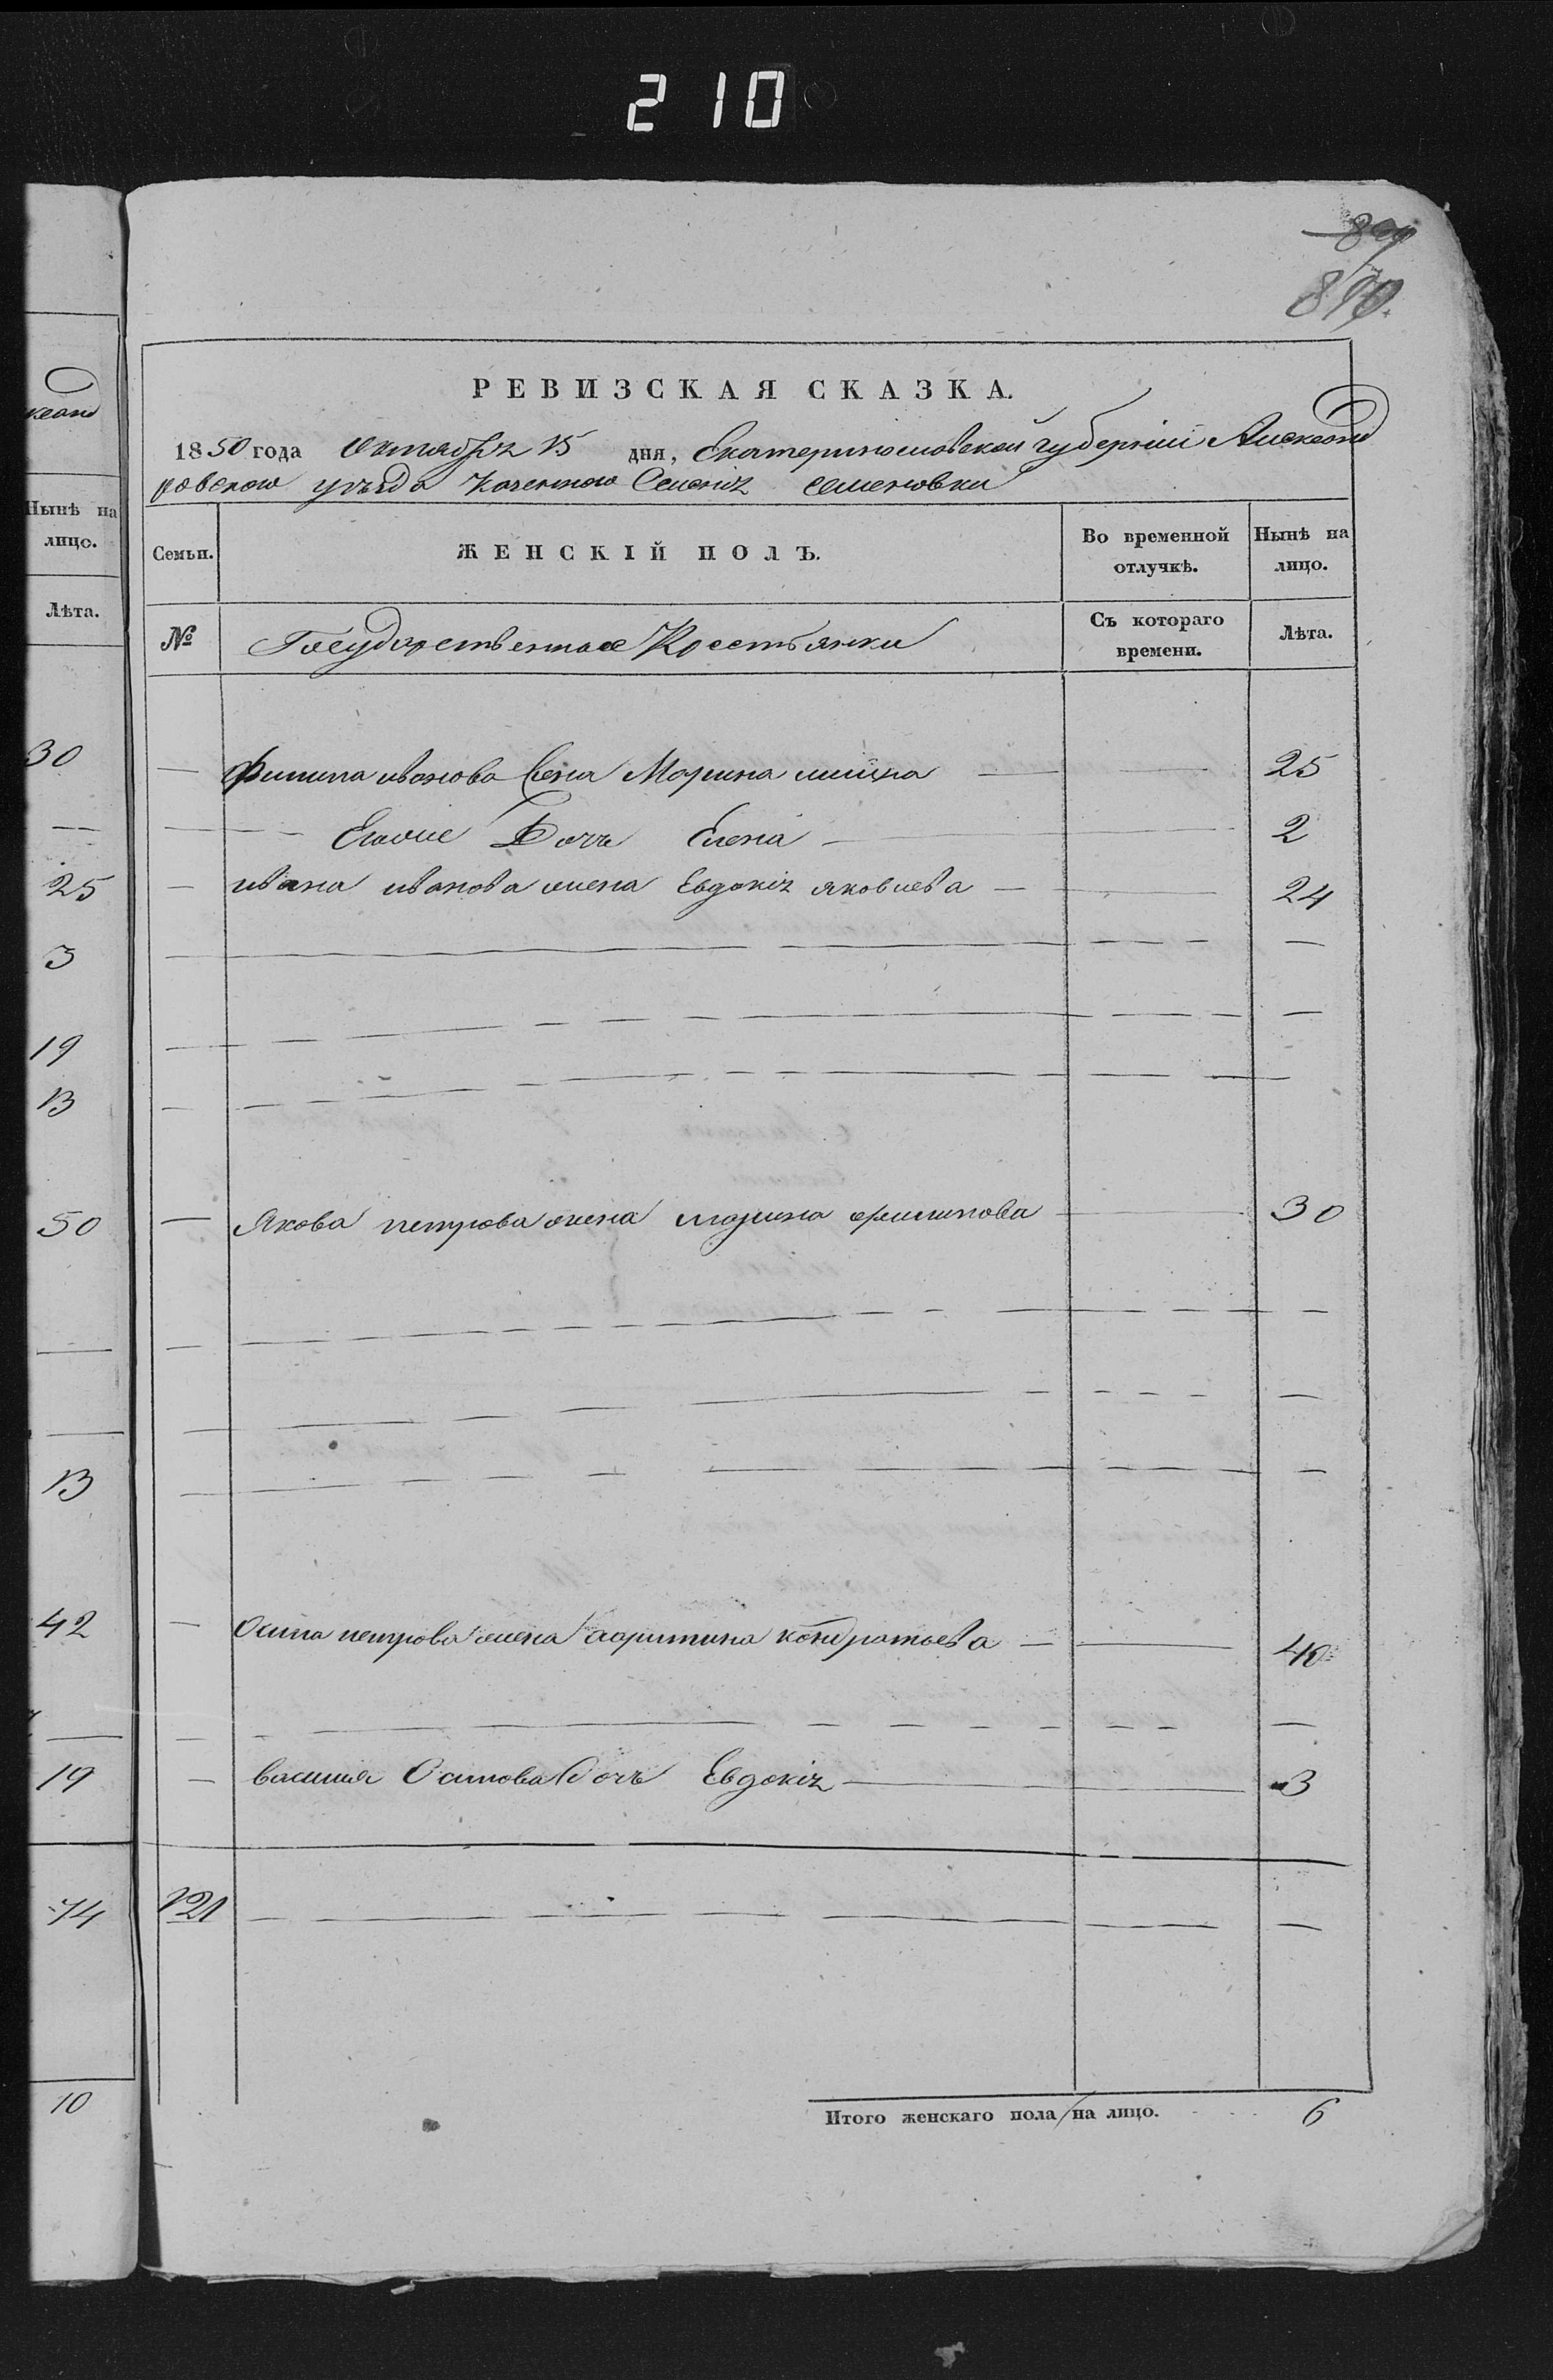 210
809
870.
кеанд
Нынѣ на
лицо.
Лѣта.
30
25
3
19
13
50
13
42
19
74
10
РЕВИЗСКАЯ СКАЗКА.
1850 года Октября 15 дня, Екатеринославской губерніи Александ
ровского уѣзда Казенного Селенія Семеновки
Семьи. ЖЕНСКІЙ ПОЛЪ. Во временной отлучкѣ. Нынѣ на лицо.
№ Государственные Крестьянки Съ котораго времени. Лѣта.
— Филипа иванова жена Марина — — 25
— — Еговые Дочь Елена — — 2
— ивана иванова жена Евдокія яковлева — — 24
— Якова петрова жена марина филипова — 30
— Осипа петрова жена кондратьева — — 40
— василия Осипова дочь Евдокія — — 3
121
Итого женскаго пола на лицо. 6